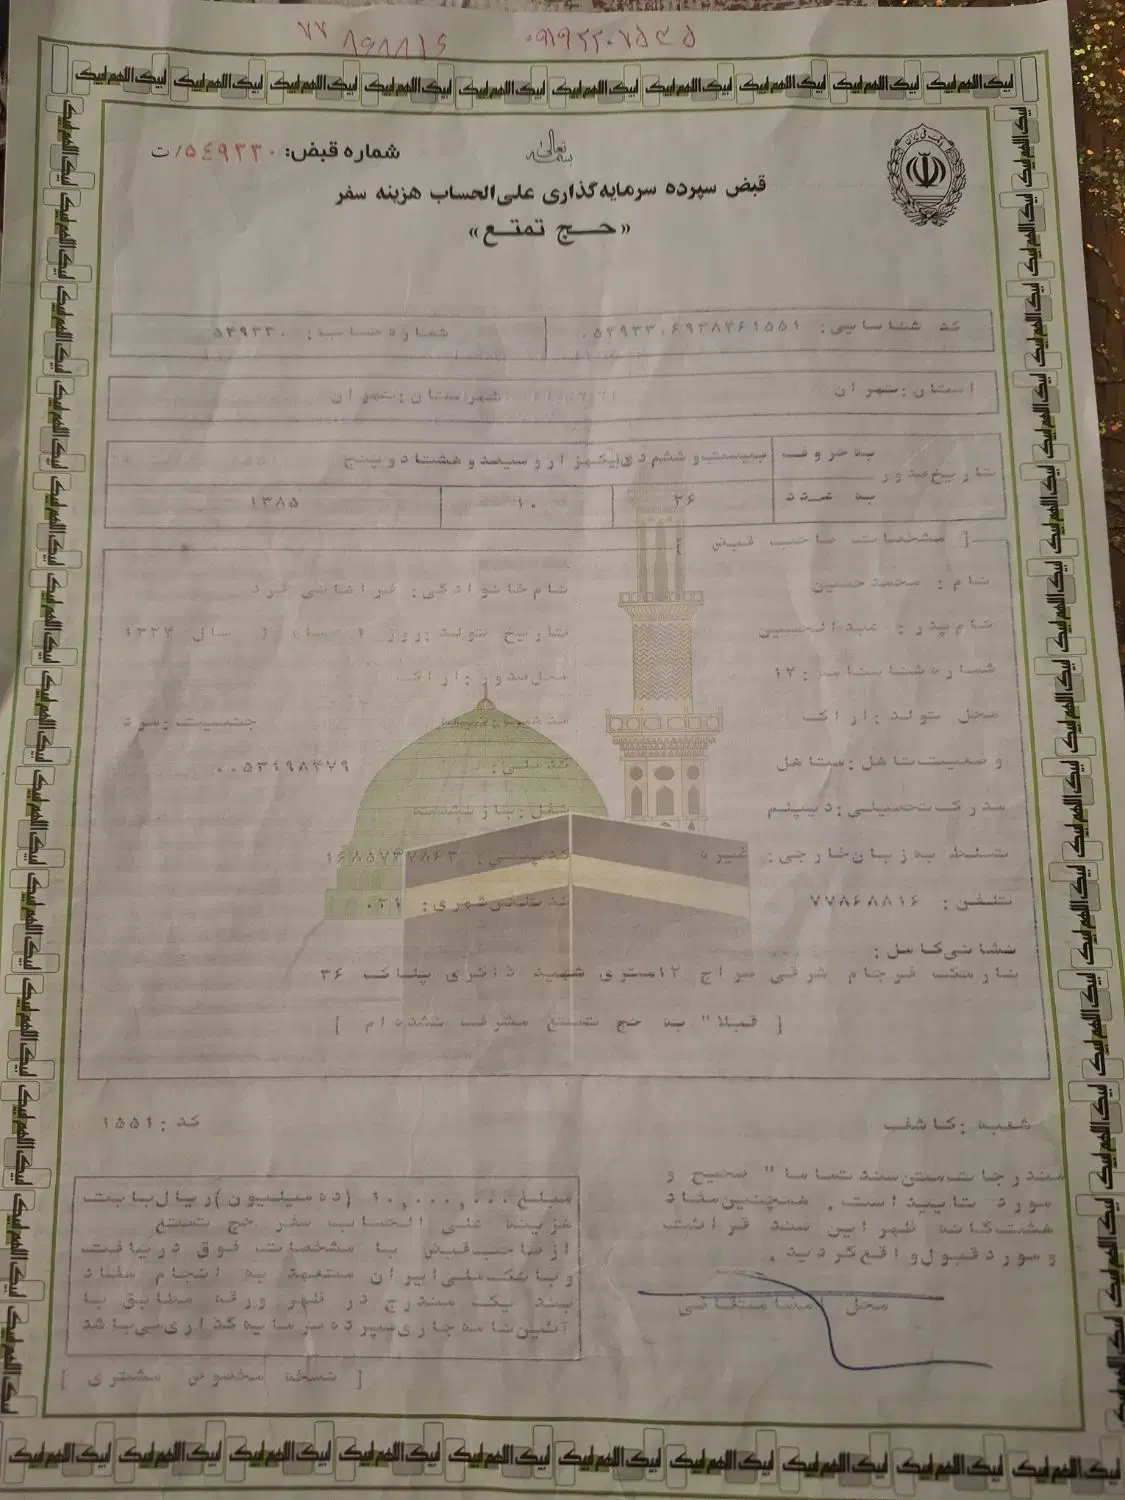 ۷۷ ۸۶۸۸۱۶
بسمه تعالی
شماره قبض: ۵۴۹۳۳۰/ت
قبض سپرده سرمایه‌گذاری علی‌الحساب هزینه سفر
«حج تمتع»
کد شناسایی: شماره حساب: ۵۴۹۳۳۰
استان: تهران شهرستان: تهران
تاریخ صدور به حروف بیست و ششم دی یکهزار و سیصد و هشتاد و پنج
به عدد ۲۶ ۱۰ ۱۳۸۵
[ مشخصات صاحب قبض ]
نام: محمدحسین نام خانوادگی: فراهانی فرد
نام پدر: عبدالحسین تاریخ تولد: روز ماه سال ۱۳۲۴
شماره شناسنامه: ۱۴ محل صدور: اراک
محل تولد: اراک جنسیت: مرد
وضعیت تاهل: متاهل کد ملی: ۰۰۵۳۱۹۸۴۷۹
مدرک تحصیلی: دیپلم شغل: بازنشسته
تسلط به زبان خارجی: غیره کد پستی:
تلفن: ۷۷۸۶۸۸۱۶ کد تلفن شهری: ۰۲۱
نشانی کامل:
نارمک فرجام شرقی سراج ۱۲متری شهید پلاک ۳۶
[ قبلا" به حج تمتع مشرف نشده‌ام ]
شعبه: کاشف کد: ۱۵۵۱
مندرجات متن سند تماما" صحیح و
مورد تایید است. همچنین مفاد
هشت‌گانه ظهر این سند قرائت
و مورد قبول واقع گردید.
محل امضا متقاضی
مبلغ ۱۰,۰۰۰,۰۰۰ (ده میلیون) ریال بابت
هزینه علی الحساب سفر حج تمتع
از صاحب قبض با مشخصات فوق دریافت
و بانک ملی ایران متعهد به انجام مفاد
بند یک مندرج در ظهر ورقه مطابق با
آئین‌نامه جاری سپرده سرمایه گذاری می‌باشد
[ نسخه مخصوص مشتری ]
لبیک اللهم لبیک